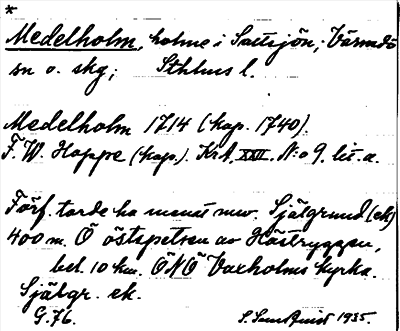 *
Medelholm, holme i Saltsjön, Värmdö
sn o. skg; Sthlms l.
Medelholm 1714 (kop. 1740).
F. W. Hoppe (kop.). KrA, XXVI. N:o 9. lit. a.
Förf. torde ha menat mw. Själgrund (ek)
400 m. Ö östspetsen av Hästryggen,
bel. 10 km. ÖNÖ Vaxholms kyrka.
Själgr. ek.
G. 76.
1935.